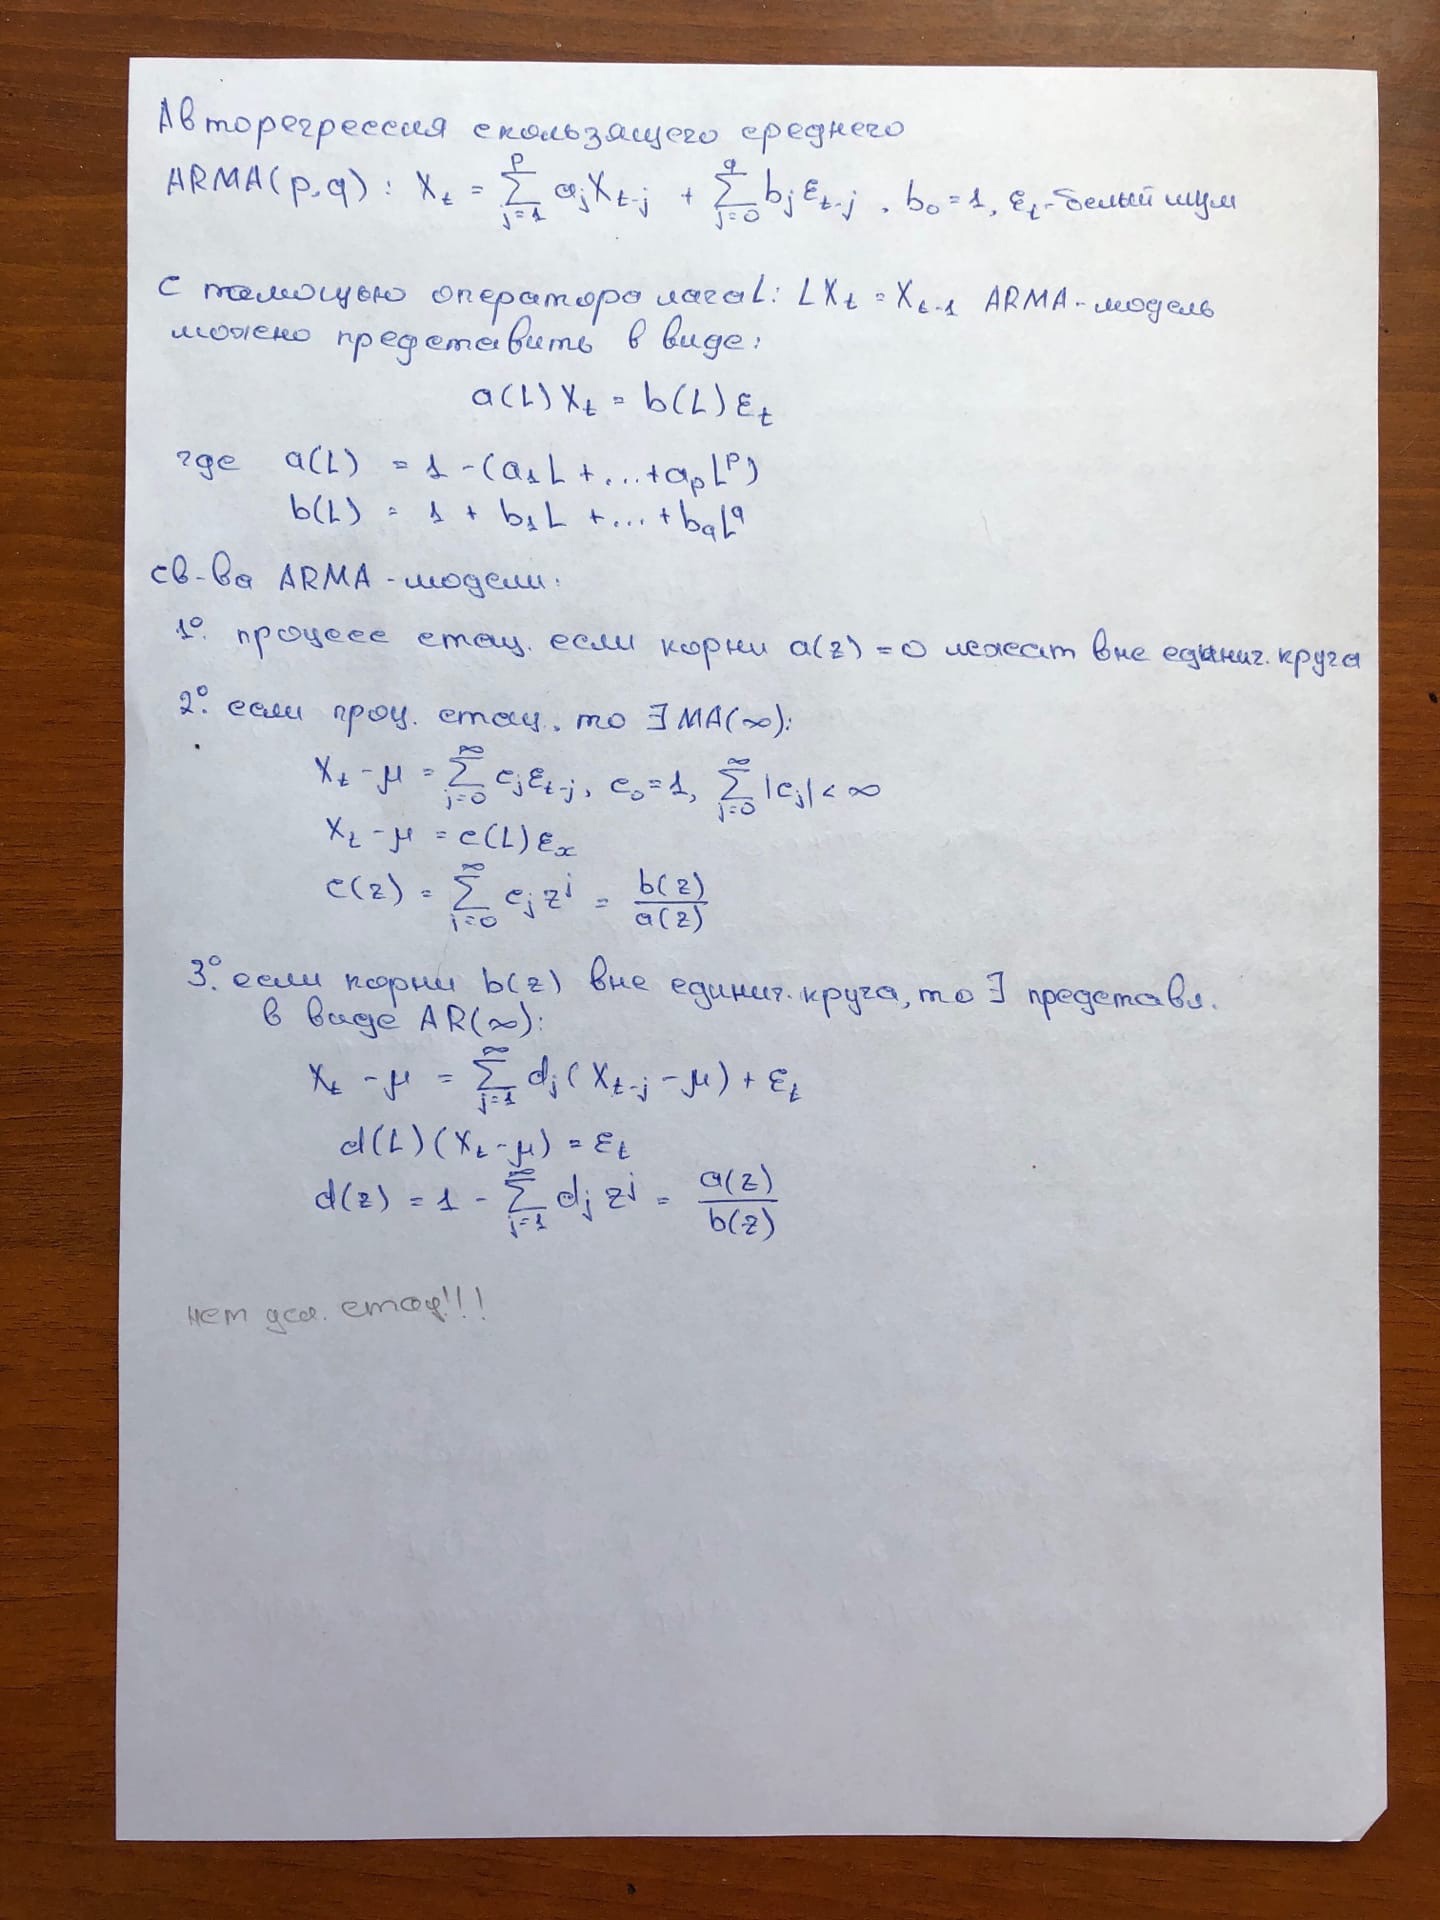 Авторегрессия скользящего среднего
ARMA(p,q): X_t = ∑_{j=1}^{p} a_j X_{t-j} + ∑_{j=0}^{q} b_j ε_{t-j}, b_0 = 1, ε_t - белый шум
С помощью оператора лага L: LX_t = X_{t-1} ARMA-модель
можно представить в виде:
a(L)X_t = b(L)ε_t
где a(L) = 1 - (a_1L + ... + a_pL^p)
b(L) = 1 + b_1L + ... + b_qL^q
св-ва ARMA-модели:
1°. процесс стац. если корни a(z) = 0 лежат вне единич. круга
2°. если проц. стац., то ∃ MA(∞):
X_t - μ = ∑_{j=0}^{∞} c_j ε_{t-j}, c_0 = 1, ∑_{j=0}^{∞} |c_j| < ∞
X_t - μ = c(L)ε_x
c(z) = ∑_{j=0}^{∞} c_j z^j = b(z)/a(z)
3°. если корни b(z) вне единич. круга, то ∃ представл.
в виде AR(∞):
X_t - μ = ∑_{j=1}^{∞} d_j(X_{t-j} - μ) + ε_t
d(L)(X_t - μ) = ε_t
d(z) = 1 - ∑_{j=1}^{∞} d_j z^j = a(z)/b(z)
нет усл. стац!!!